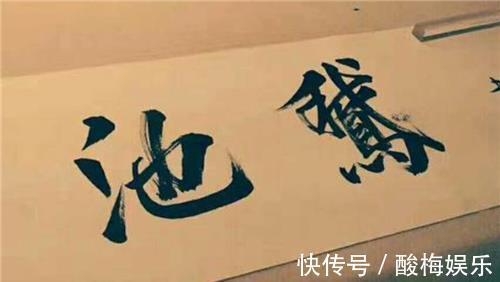 池鵞
快传号 / 酸梅娱乐